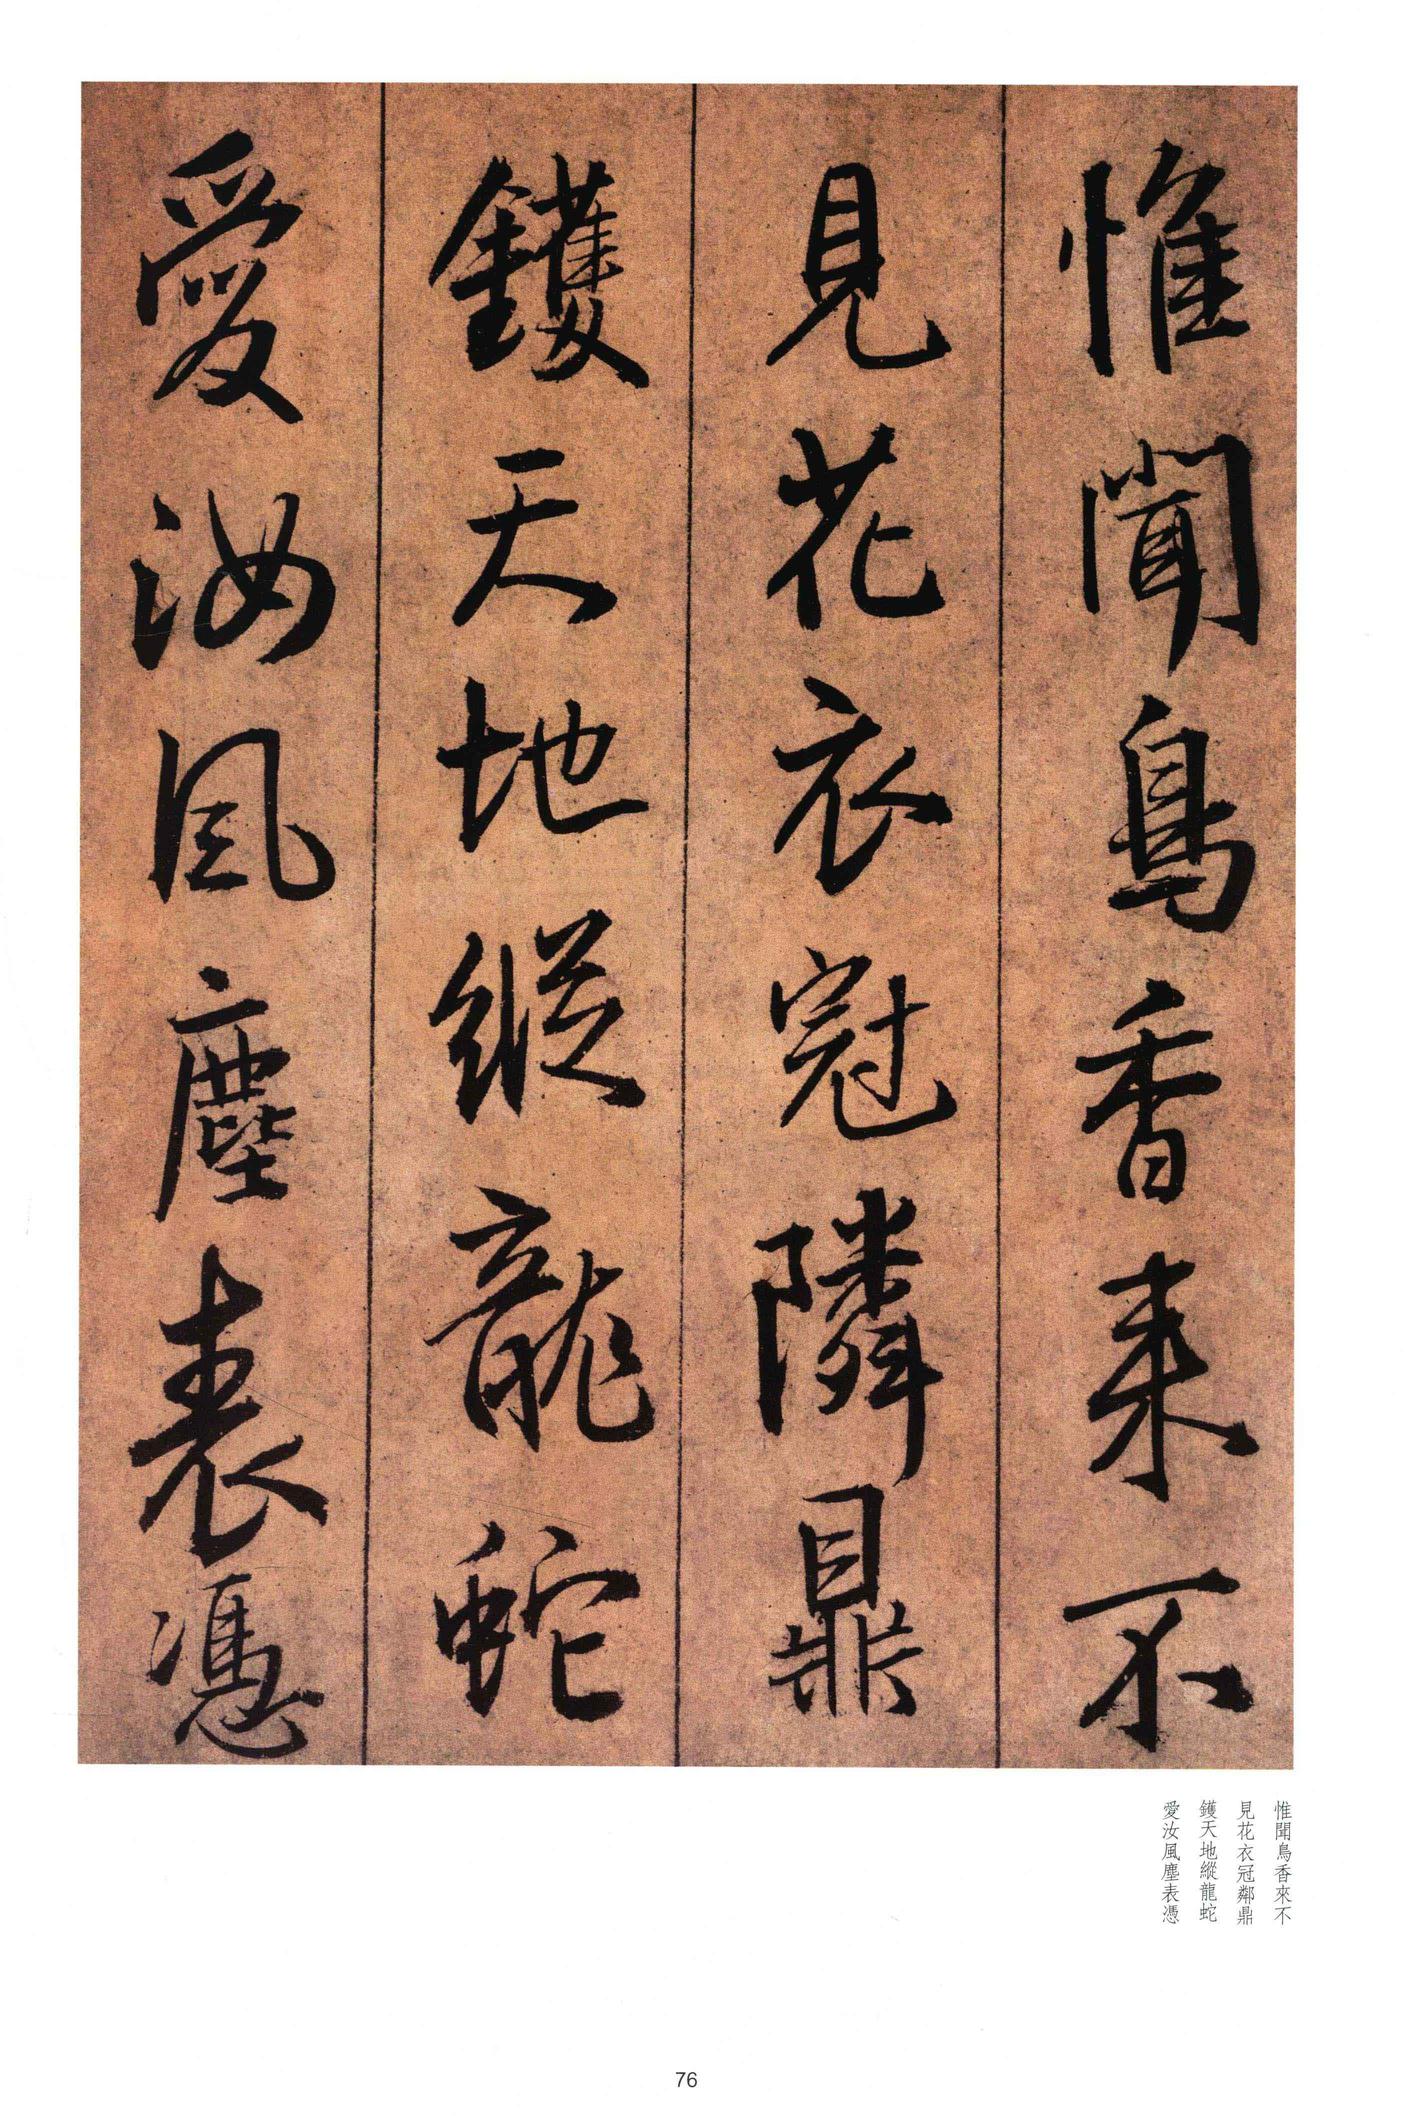 惟聞鳥香来不
見花衣冠隣鼎
鑊天地縱龍蛇
愛汝風塵表憑
惟聞鳥香來不
見花衣冠鄰鼎
鑊天地縱龍蛇
愛汝風塵表憑
76